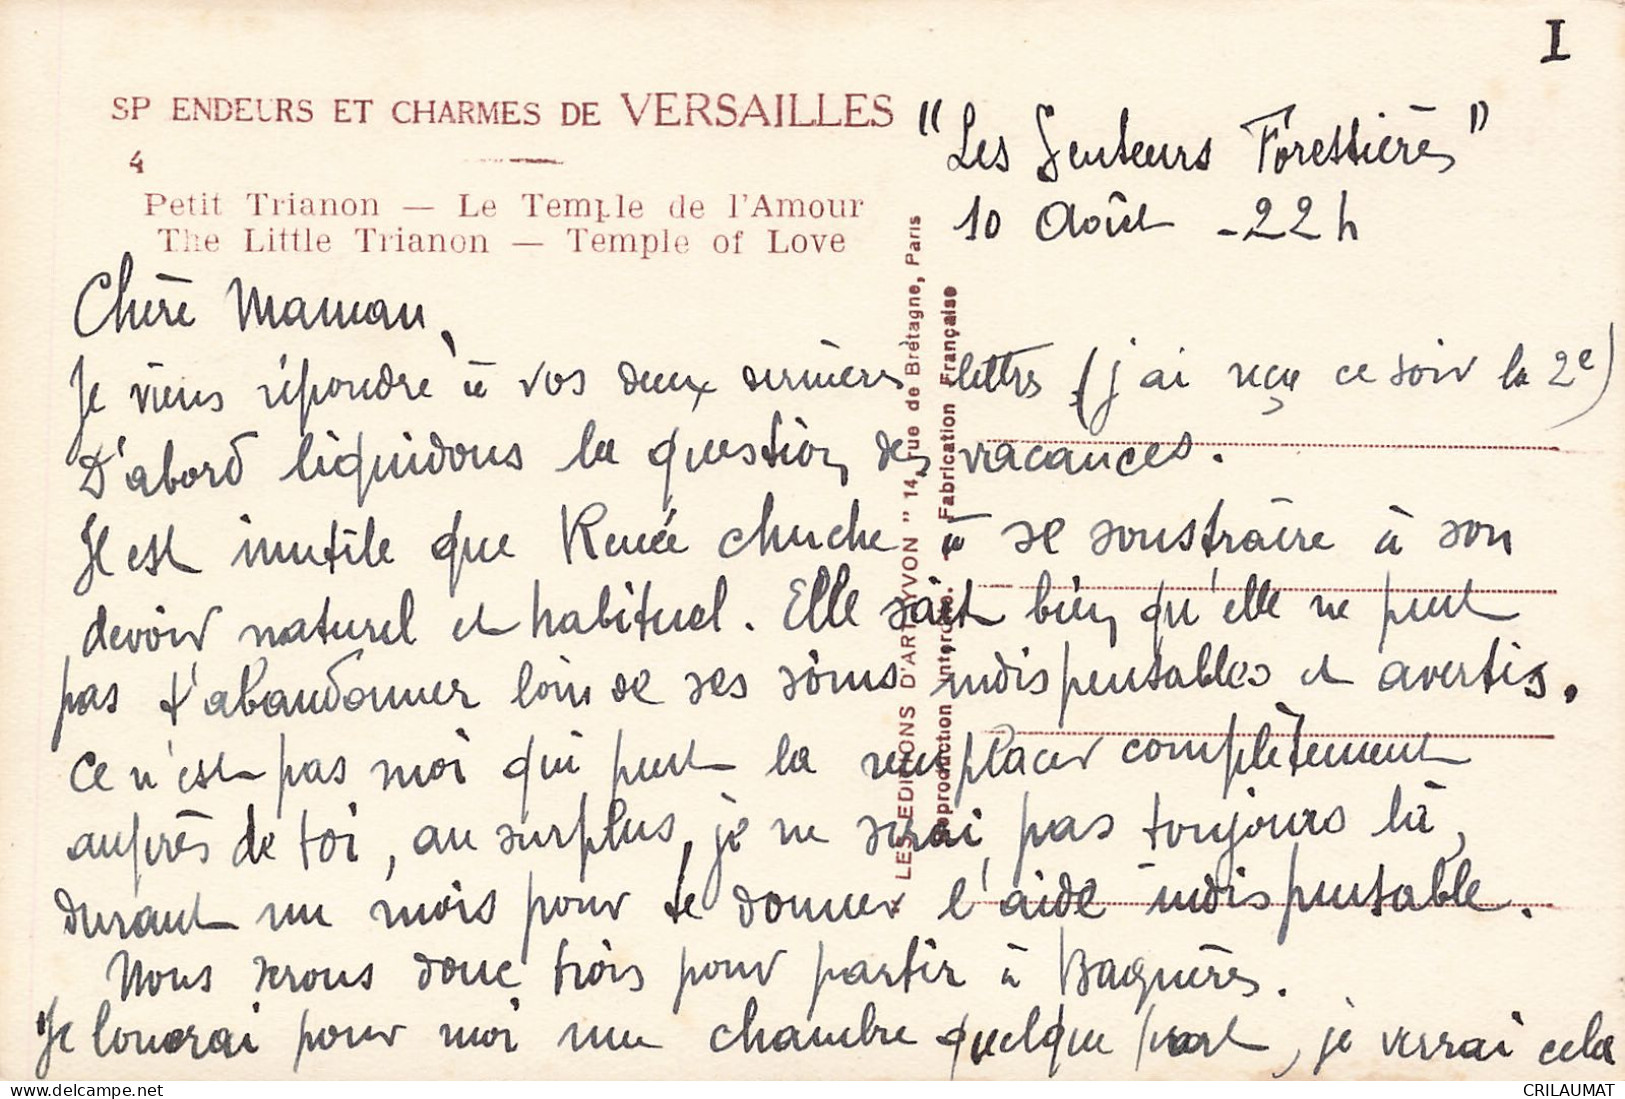 I
SP ENDEURS ET CHARMES DE VERSAILLES
4
Petit Trianon — Le Temple de l'Amour
The Little Trianon — Temple of Love
"Les Senteurs Forestières"
10 Août - 22 h
LES EDITIONS D'ART YVON " 14, rue de Bretagne, Paris
Reproduction interdite. — Fabrication Française
Chère Maman,
Je viens répondre à vos deux dernières lettres (j'ai reçu ce soir la 2e)
D'abord liquidons la question des vacances.
Il est inutile que Renée cherche à se soustraire à son
devoir naturel et habituel. Elle sait bien qu'elle ne peut
pas t'abandonner loin de ses soins indispensables et avertis.
Ce n'est pas moi qui peut la remplacer complètement
auprès de toi, au surplus, je ne serai pas toujours là,
durant un mois pour te donner l'aide indispensable.
Nous serons donc trois pour partir à Bagnères.
Je louerai pour moi une chambre quelque part, je verrai cela
CRILAUMAT